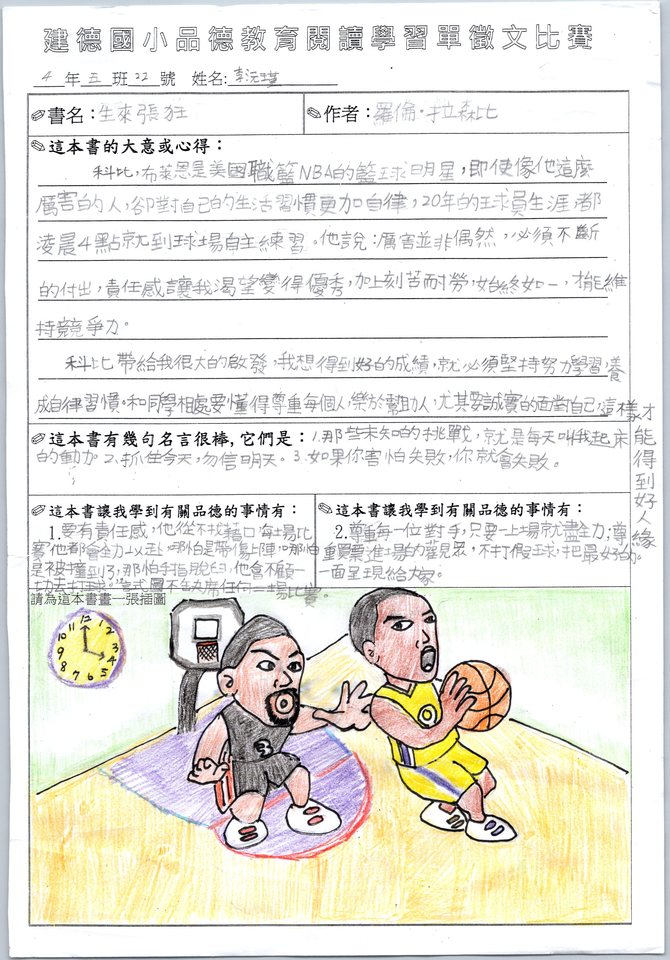 建德國小品德教育閱讀學習單徵文比賽
4 年 五 班 22 號 姓名:李沅
書名:生來張狂
作者:羅倫·拉森比
這本書的大意或心得:
科比,布萊恩是美國職籃NBA的籃球明星,即使像他這麼
厲害的人,卻對自己的生活習慣更加自律,20年的球員生涯都
凌晨4點就到球場自主練習。他說:厲害並非偶然,必須不斷
的付出,責任感讓我渴望變得優秀,加上刻苦耐勞,始終如一,才能維
持競爭力。
科比帶給我很大的啟發,我想得到好的成績,就必須堅持努力學習,養
成自律習慣。和同學相處要懂得尊重每個人,樂於幫助人,尤其要誠實的面對自己,這樣才
能得到好人緣
這本書有幾句名言很棒,它們是:1.那些未知的挑戰,就是每天叫我起床
的動力。2.抓住今天,勿信明天。3.如果你害怕失敗,你就會失敗。
這本書讓我學到有關品德的事情有:
1.要有責任感,他從不找藉口,每場比
賽他都會全力以赴,哪怕是帶傷上陣,哪怕
是被撞到了,那怕手指脫臼,他會不顧一
切去打球。試圖不缺席任何一場比賽。
這本書讓我學到有關品德的事情有:
2.尊重每一位對手,只要一上場就盡全力;尊
重買票進場的觀眾,不打假球,把最好的
一面呈現給大家。
請為這本書畫一張插圖
12
1
2
3
4
5
6
7
8
9
10
11
3
0